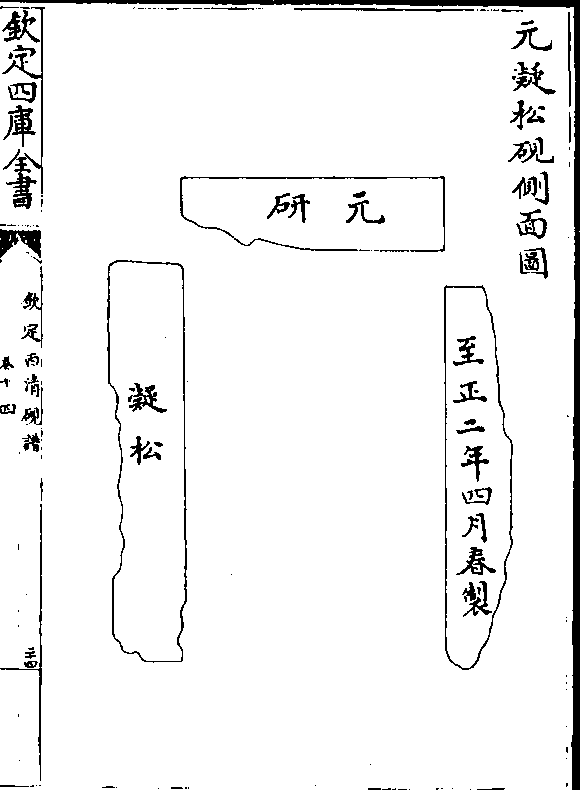 元凝松硯側面圖
元研
至正二年四月春製
凝松
欽定四庫全書
欽定西清硯譜
卷十四
二十四